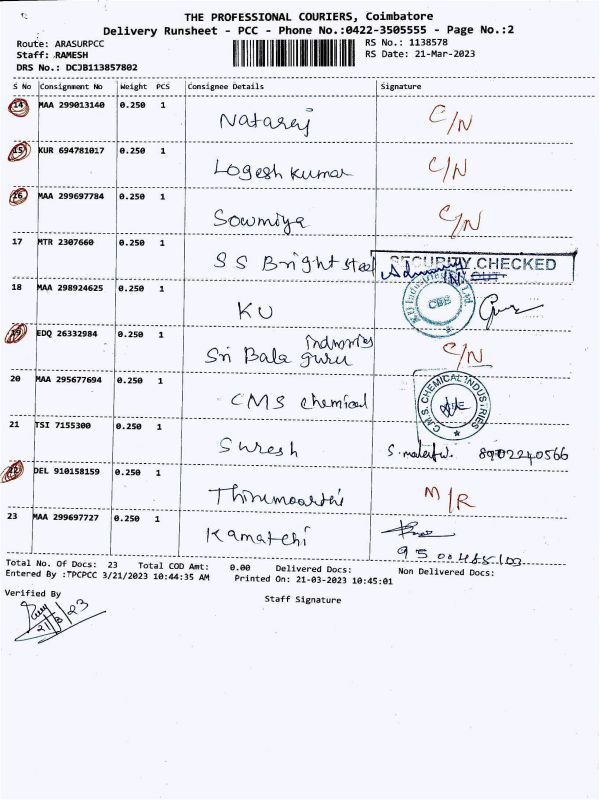 THE PROFESSIONAL COURIERS, Coimbatore
Delivery Runsheet - PCC - Phone No.:0422-3505555 - Page No.:2
Route: ARASURPCC RS No.: 1138578
Staff: RAMESH RS Date: 21-Mar-2023
DRS No.: DCJB113857802
S No Consignment No Weight PCS Consignee Details Signature
14 MAA 299013140 0.250 1 Nataraj C/N
15 KUR 694781017 0.250 1 Logesh Kumar C/N
16 MAA 299697784 0.250 1 Sowmiya C/N
17 MTR 2307660 0.250 1 S S Bright steel SECURITY CHECKED
IN OUT
18 MAA 298924625 0.250 1 KU CBE
19 EDQ 26332984 0.250 1 Sri Bala guru industries C/N
20 MAA 295677694 0.250 1 CMS chemical C.M.S. CHEMICAL INDUSTRIES
21 TSI 7155300 0.250 1 Suresh 8902240566
22 DEL 910158159 0.250 1 Thirumoorthi M/R
23 MAA 299697727 0.250 1 Kamatchi
Total No. Of Docs: 23 Total COD Amt: 0.00 Delivered Docs: Non Delivered Docs:
Entered By :TPCPCC 3/21/2023 10:44:35 AM Printed On: 21-03-2023 10:45:01
Verified By Staff Signature
21/3/23